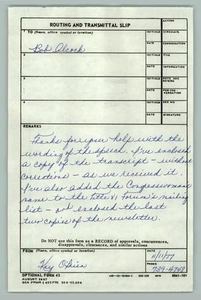 ROUTING AND TRANSMITTAL SLIP
ACTION
1 TO (Name, office symbol or location)
INITIALS
CIRCULATE
DATE
COORDINATION
2
INITIALS
FILE
DATE
INFORMATION
3
INITIALS
NOTE AND RETURN
DATE
PER CONVERSATION
4
INITIALS
SEE ME
DATE
SIGNATURE
REMARKS
Thanks for your help with the
wording of the speech. I've enclosed
a copy of the transcript - without
corrections - as we received it.
I've also added the Congressman's
name to the Title VI Forum's mailing
list - and enclosed the last
two copies of the newsletter.
Do NOT use this form as a RECORD of approvals, concurrences,
disapprovals, clearances, and similar actions
FROM (Name, office symbol or location)
DATE
Kay O'Brien
PHONE
OPTIONAL FORM 41
AUGUST 1967